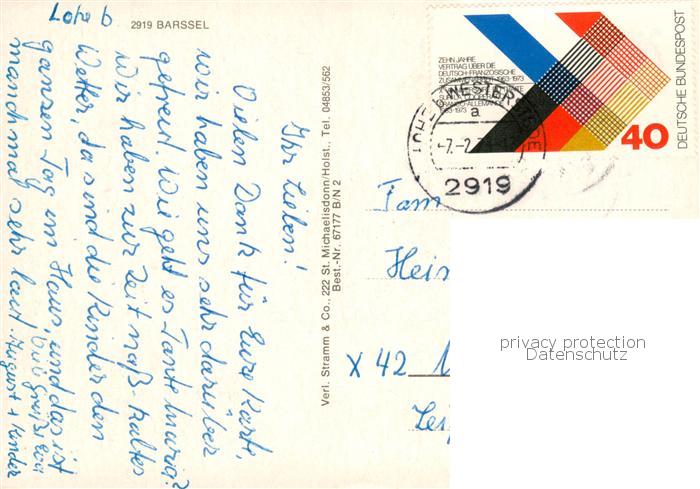 Lohe b
2919 BARSSEL
Ihr Lieben!
Vielen Dank für Eure Karte,
wir haben uns sehr darüber
gefreut. Wie geht es Tante Maria?
Wir haben zur Zeit naß-kaltes
Wetter, da sind die Kinder den
ganzen Tag im Haus, und das ist
manchmal sehr laut.
August + Kinder
Verl. Stramm & Co., 222 St. Michaelisdonn/Holst., Tel. 04853/562
Best.-Nr. 67177 B/N 2
ZEHN JAHRE
VERTRAG ÜBER DIE
DEUTSCH-FRANZÖSISCHE
ZUSAMMENARBEIT 1963-1973
DEUTSCHE BUNDESPOST
40
WESTERSTEDE
a
-7.-2.
2919
Fam
Hein
X 42
Leip
privacy protection
Datenschutz